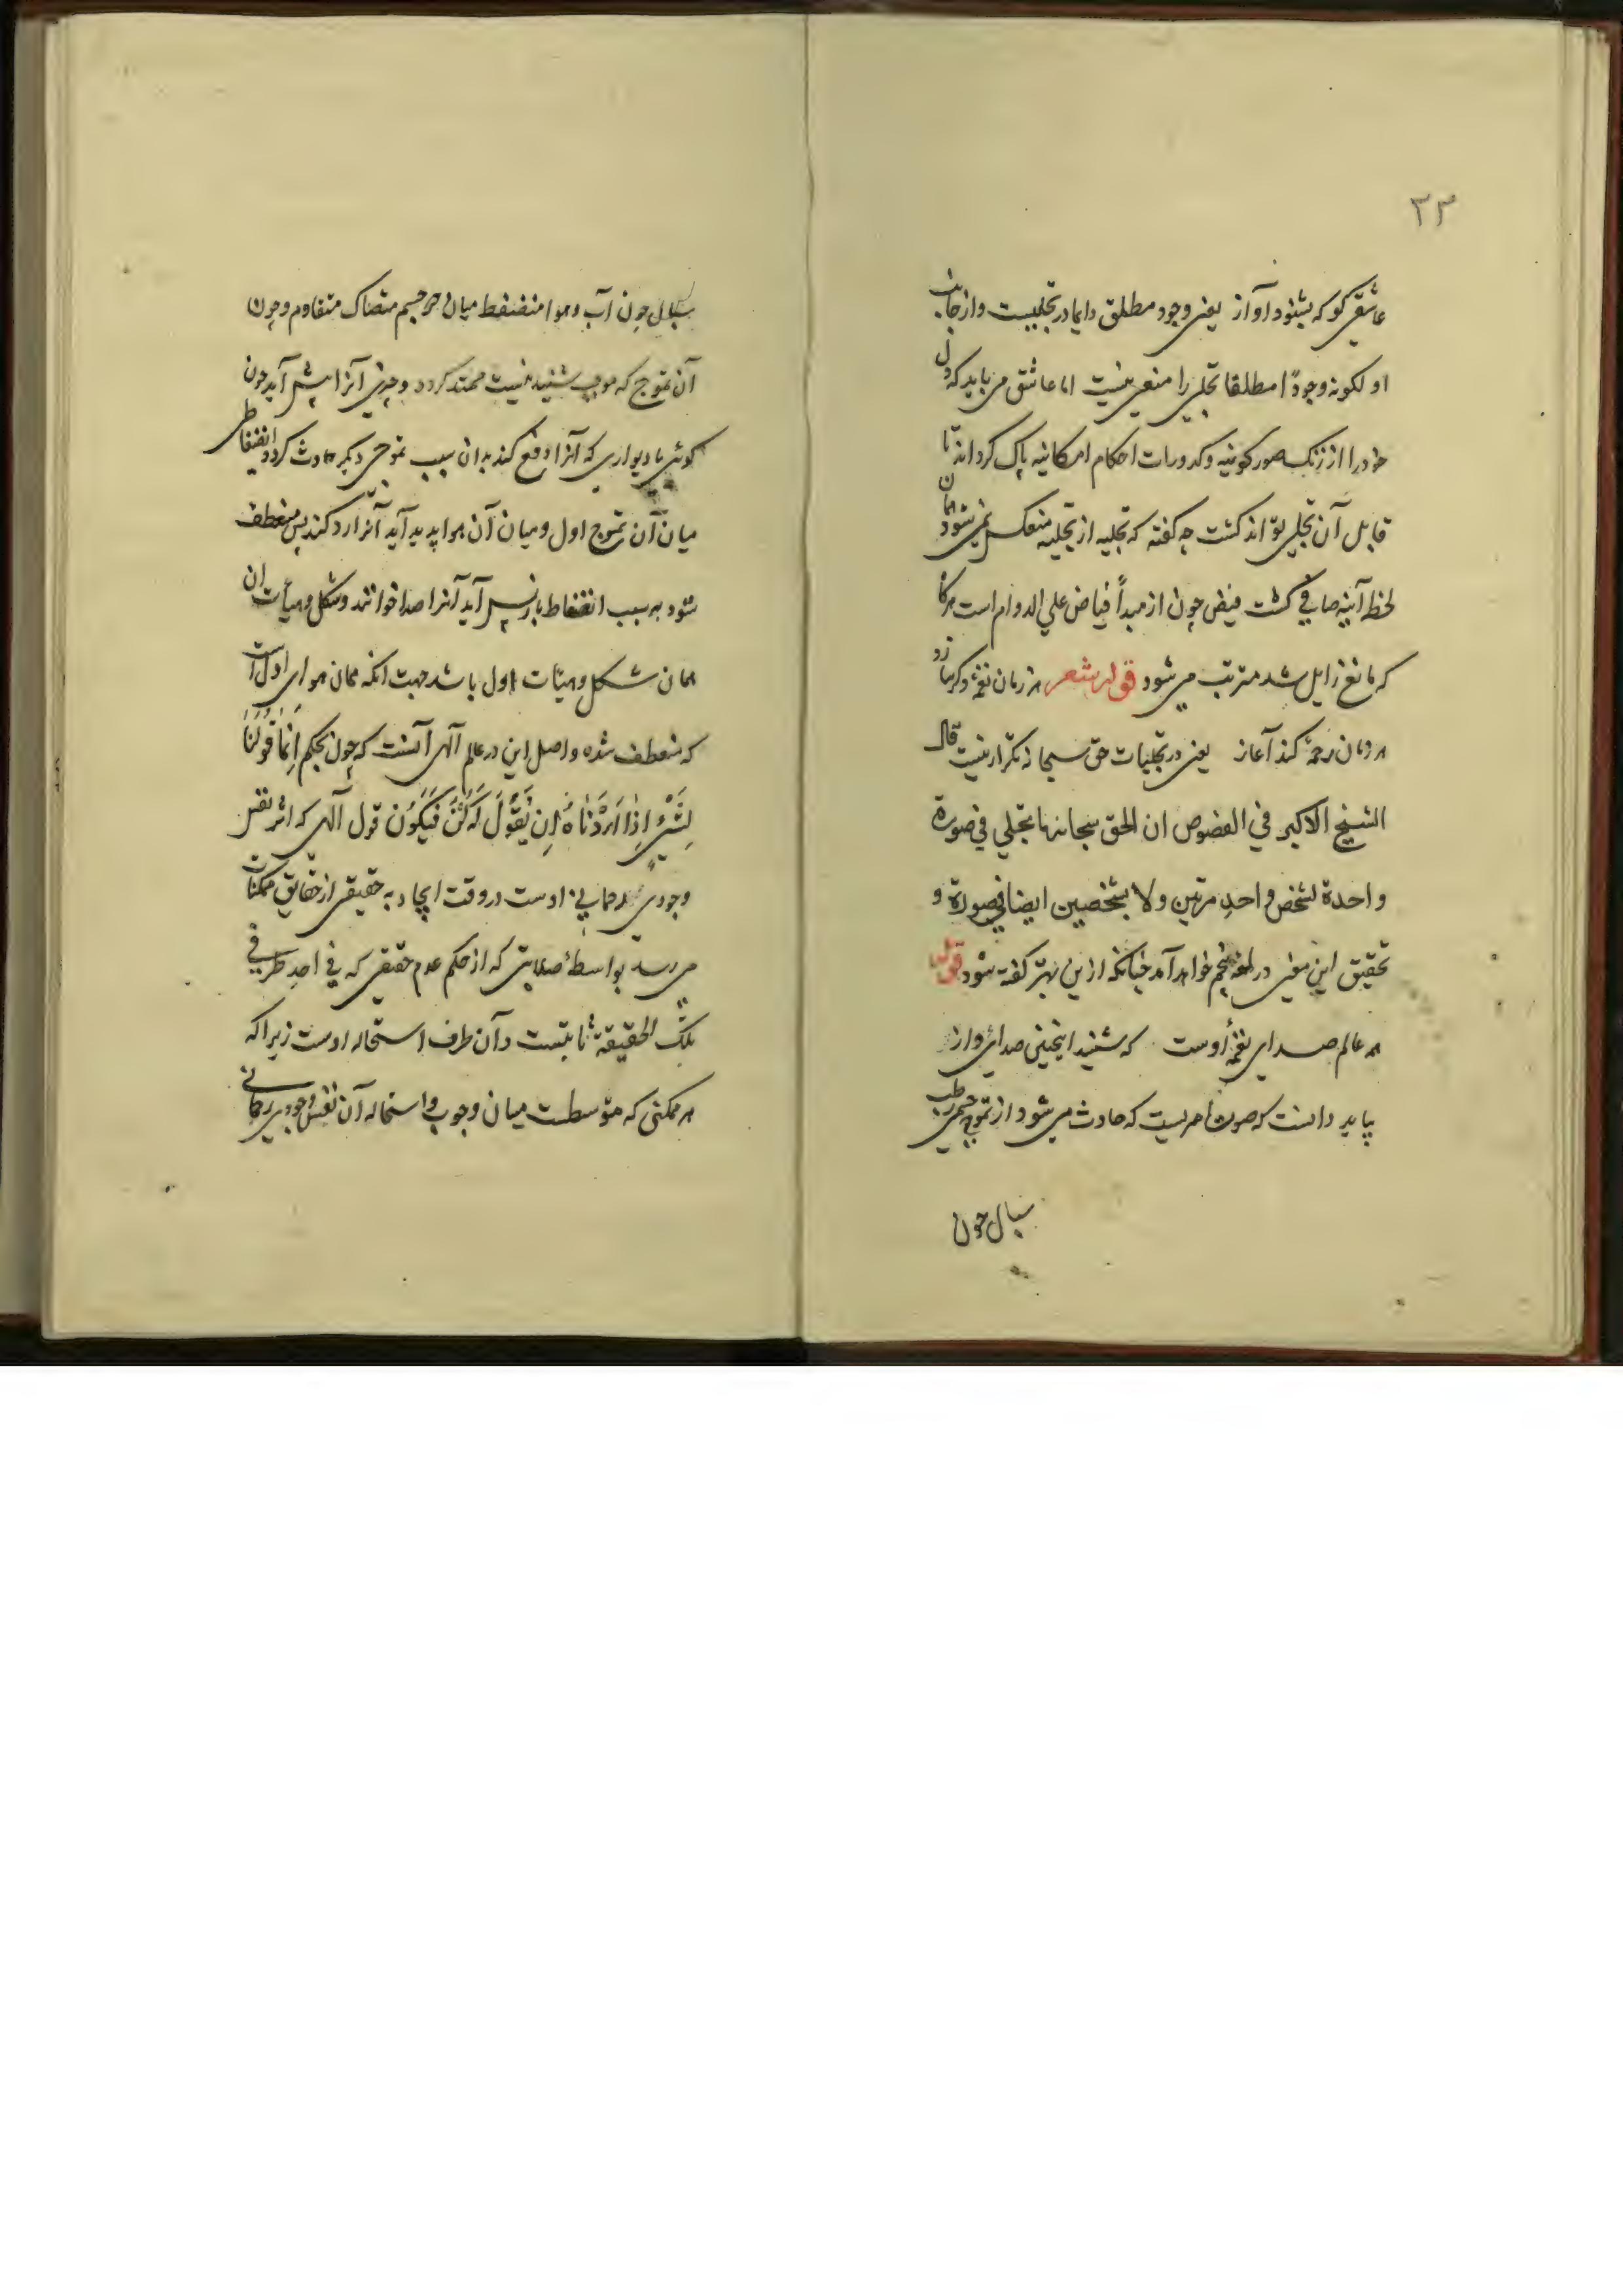 ۳۳
عاشقی کو که بشنود آواز یعنی وجود مطلق دایما در تجلیست و از جانب
او لکونه وجودًا مطلقا تجلی را منعی نیست اما عاشق می باید که دل
خود را از زنک صور کونیه و کدورات احکام امکانیه پاک کرداند تا
قابل آن تجلی تواند کشت چه کفته که تجلیه از تخلیه منعکس نمی شود همان
لحظه آینه صافی کشت فیض چون از مبدأ فیاض علی الدوام است هرکاه
که مانع زایل شد مترتب می شود قوله شعر هر زمان نغمه دکر سازد
هر زمان زخمه کند آغاز یعنی در تجلیات حق سبحانه تکرار نیست قال
الشیخ الاکبر فی الفصوص ان الحق سبحانه ما تجلی فی صورة
واحدة لشخص واحد مرتین ولا بشخصین ایضا فی صورة و
تحقیق این معنی در لمعه پنجم خواهد آمد چنانکه ازین بهتر کفته شود قوله
همه عالم صدای نغمه اوست که شنید اینچنین صدای دراز
بباید دانست که صوت امریست که حادث می شود از تموج جسمی رطب
سیال چون
سیال چون آب و هوا منضغط میان دو جسم متصاک متقاوم و چون
آن تموج که موجب شنیدنیست ممتد کردد و چیزی آنرا پیش آید چون
کوهی یا دیواری که آنرا دفع کند بدان سبب تموجی دیکر حادث کردد انضغاطی
میان آن تموج اول و میان آن هوا پدید آید آنرا رد کند پس منعطف
شود به سبب انضغاط باز پس آید آنرا صدا خوانند و شکل و هیأت آن
همان شکل و هیئات اول باشد جهت آنکه همان هوای اول است
که منعطف شده و اصل این در عالم آلهی آنست که چون بحکم اِنَّمَا قَوْلُنَا
لِشَیْءٍ اِذَا اَرَدْنَاهُ اَن نَّقُولَ لَهُ کُنْ فَیَکُوُن قول آلهی که اثر نفس
وجودی رحمانی اوست در وقت ایجاد به حقیقتی از حقایق ممکنات
می رسد بواسطهٔ صلابتی که از حکم عدم حقیقی که فی احد طرفی
تلک الحقیقة ثابتست و آن طرف استحاله اوست زیرا که
هر ممکنی که متوسطست میان وجوب و استحاله آن نفس وجودی رحمانی